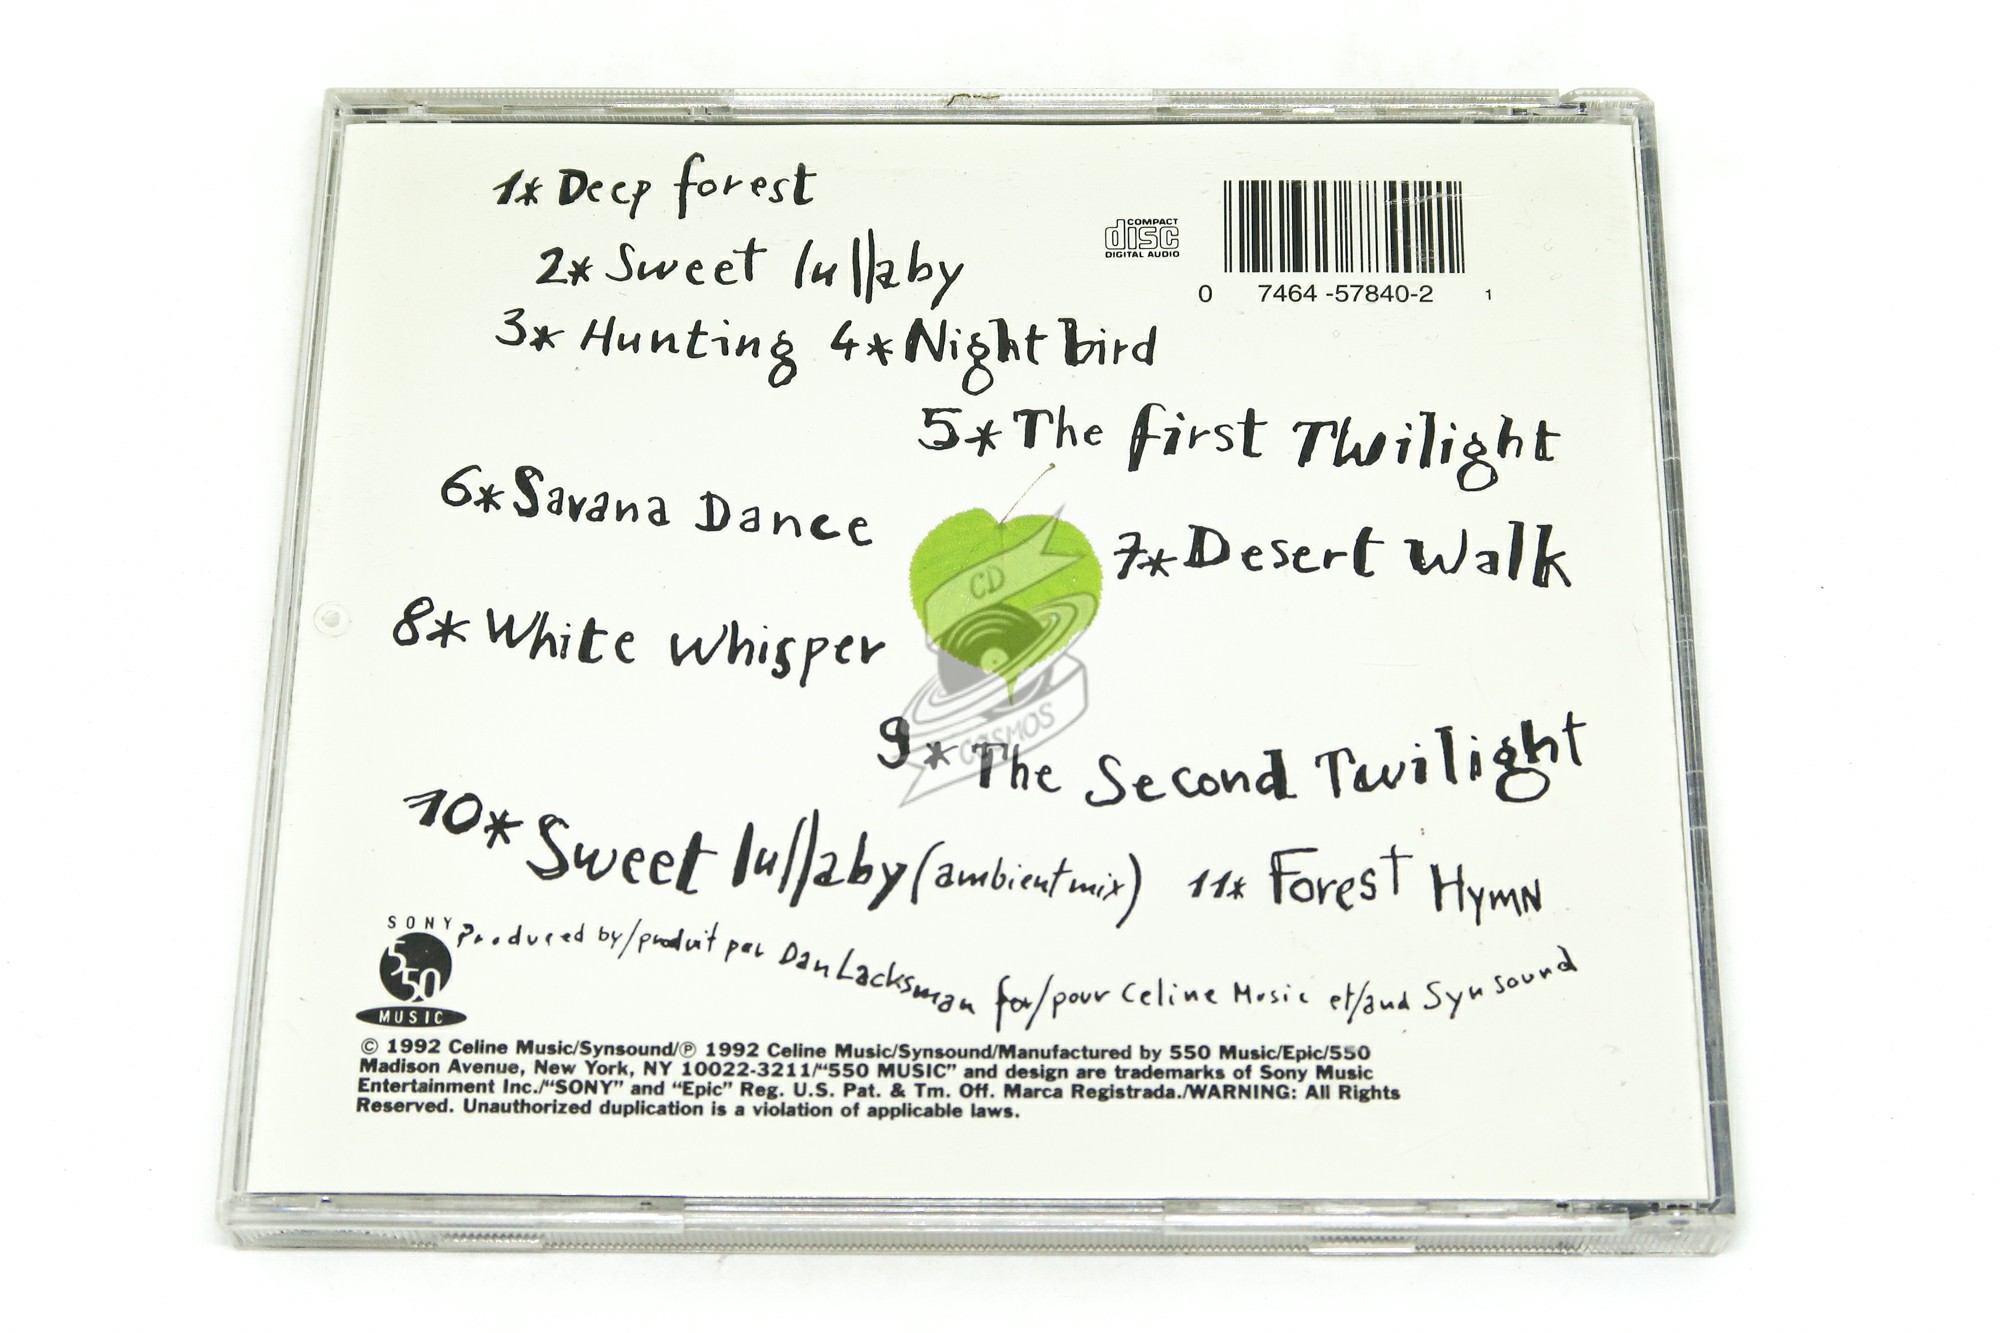 1* Deep forest
COMPACT
disc
DIGITAL AUDIO
0 7464 -57840-2 1
2* Sweet lullaby
3* Hunting 4* Night bird
5* The first Twilight
6* Savana Dance
7* Desert Walk
CD
8* White Whisper
COSMOS
9* The Second Twilight
10* Sweet lullaby (ambient mix) 11* Forest HYMN
SONY
550
MUSIC
Produced by/produit par Dan Lacksman for/pour Celine Music et/and Synsound
© 1992 Celine Music/Synsound/℗ 1992 Celine Music/Synsound/Manufactured by 550 Music/Epic/550
Madison Avenue, New York, NY 10022-3211/“550 MUSIC” and design are trademarks of Sony Music
Entertainment Inc./“SONY” and “Epic” Reg. U.S. Pat. & Tm. Off. Marca Registrada./WARNING: All Rights
Reserved. Unauthorized duplication is a violation of applicable laws.